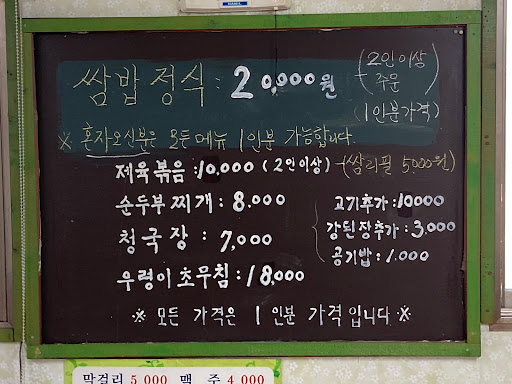 쌈밥정식 : 20,000원 (2인이상 주문)
(1인분가격)
※ 혼자오신분은 모든메뉴 1인분 가능합니다.
제육볶음 : 10,000 (2인이상) (쌈리필 5,000원)
순두부찌개 : 8,000
고기추가 : 10000
청국장 : 7,000
강된장추가 : 3,000
우렁이초무침 : 18,000
공기밥 : 1,000
※ 모든 가격은 1인분 가격입니다 ※
막걸리 5,000 맥주 4,000